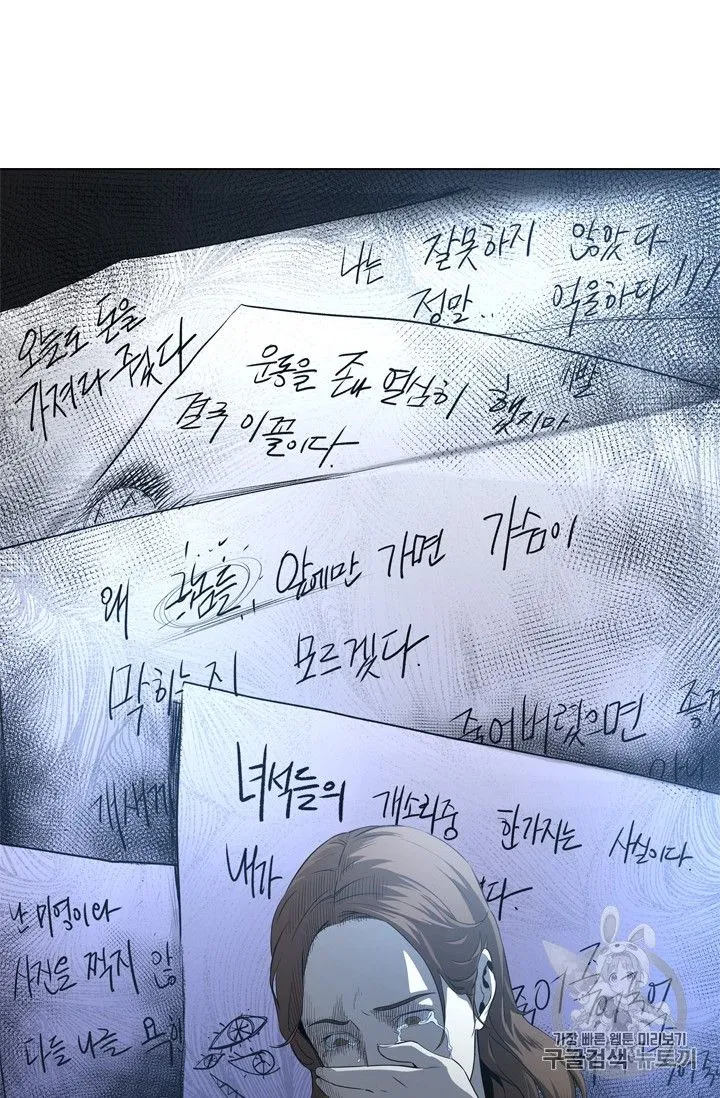 나는 잘못하지 않았다
정말.. 억울하다!!!
오늘도 돈을
가져다 주었다
운동을 존나 열심히 했지만
결국 이꼴이다.
왜 그놈들, 앞에만 가면 가슴이
막히는지 모르겠다.
죽어버렸으면
녀석들의 개소리중 한가지는 사실이다.
내가
다.
난 미엄이라
사진을 찍지 않
다들 나를 욕
죽어
가장 빠른 웹툰 미리보기
구글검색 뉴토끼